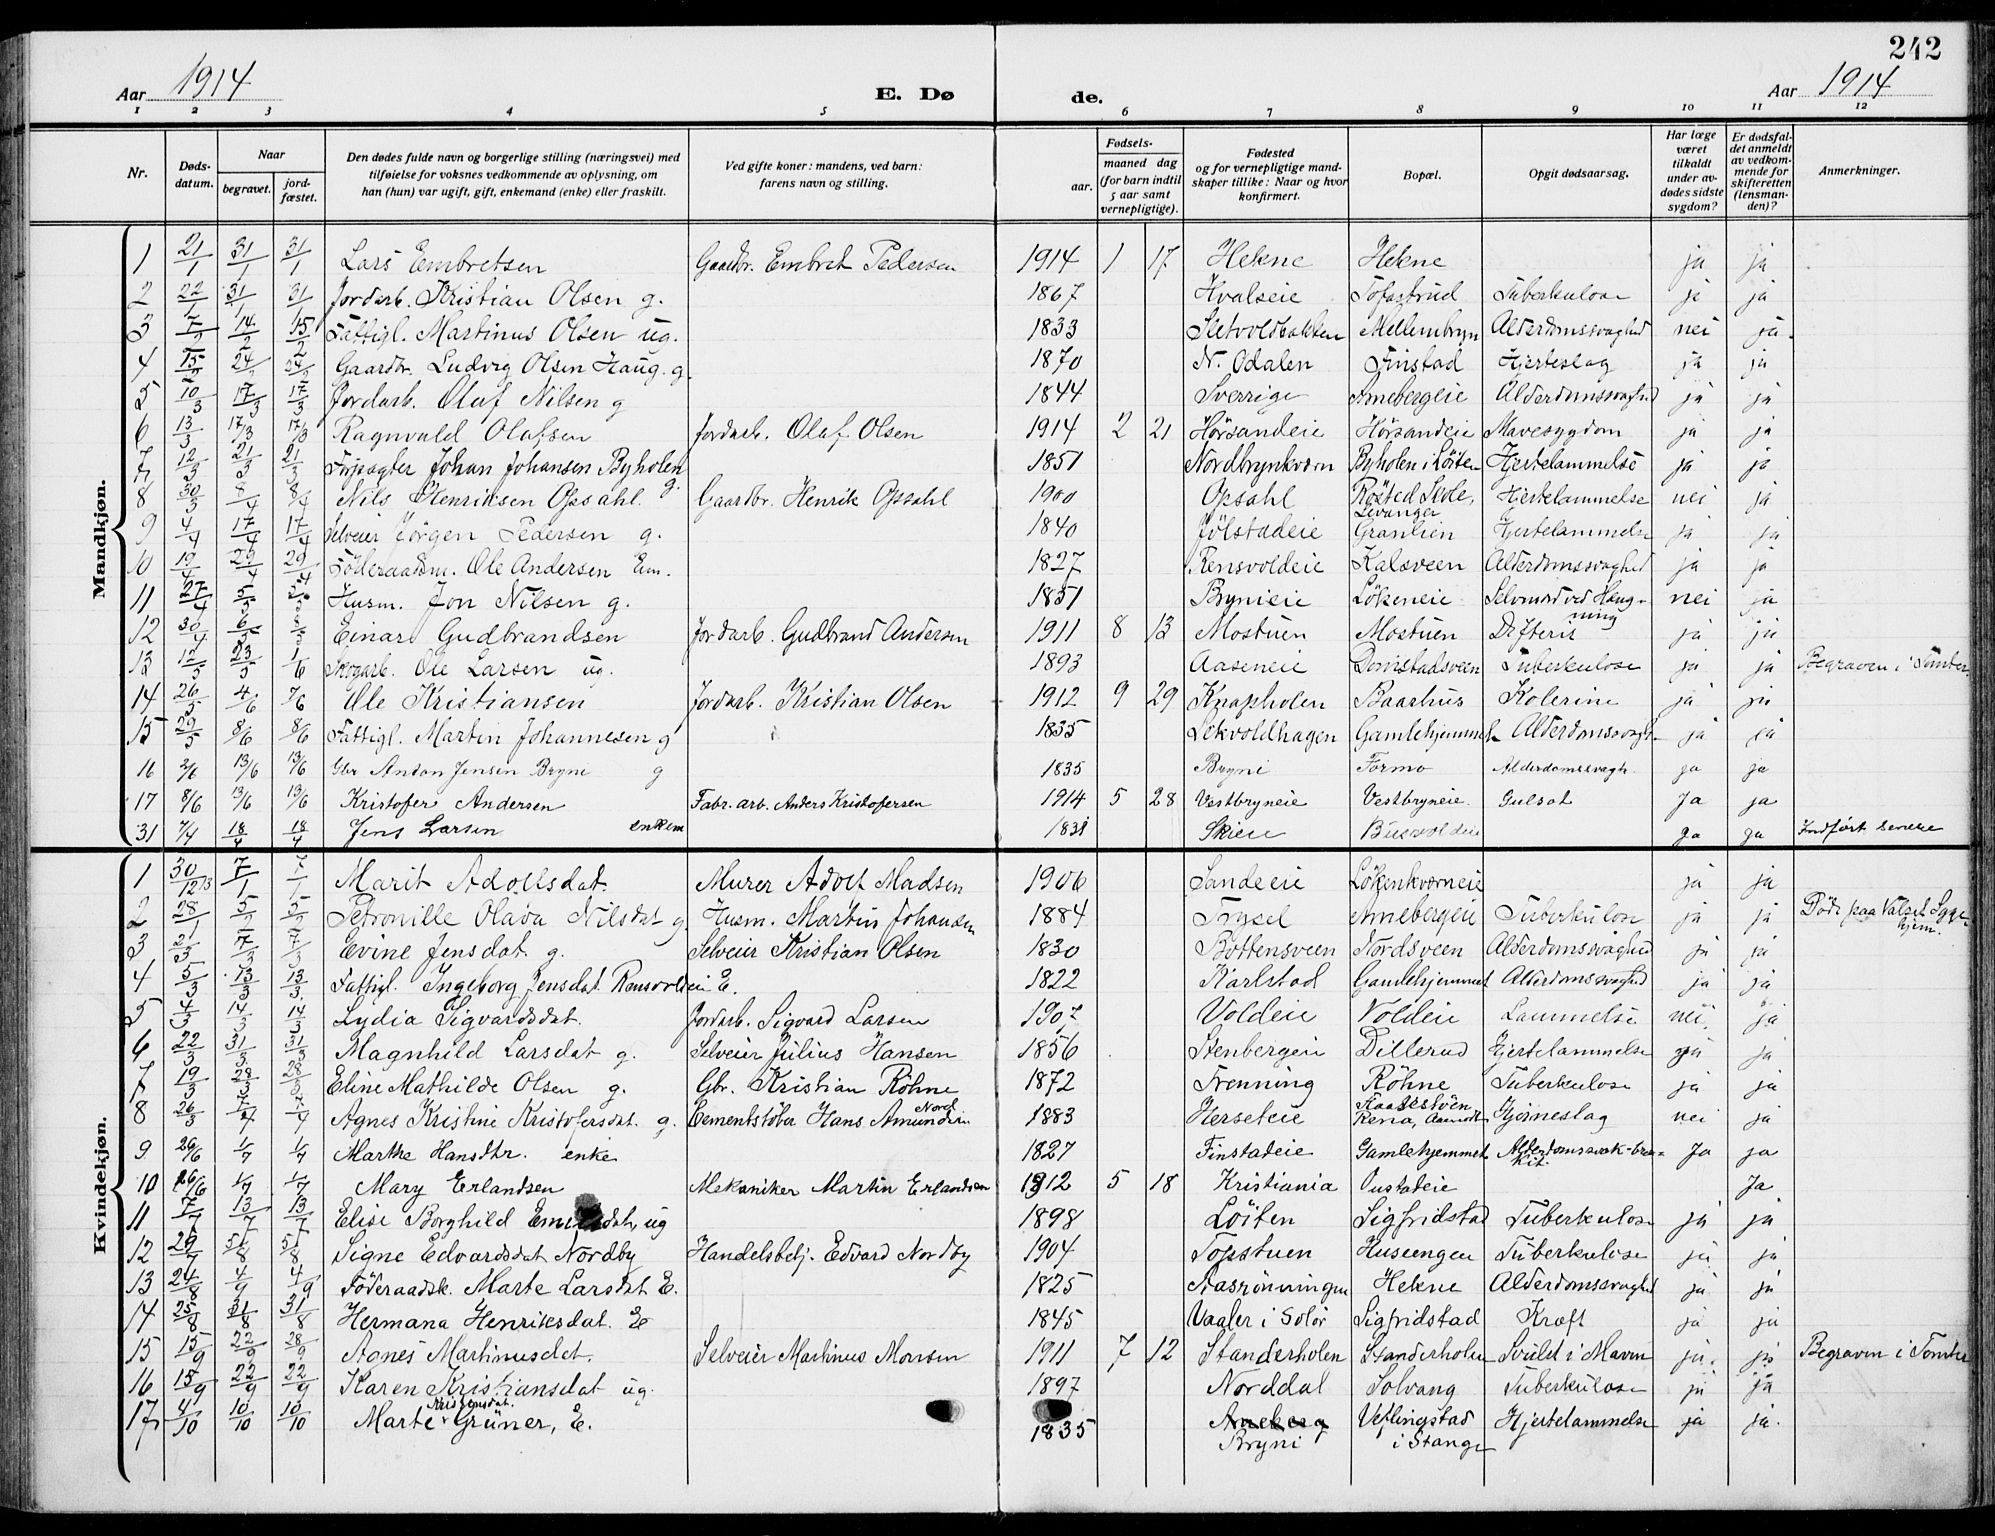 242
Aar 1914 E. Dø de. Aar 1914
1 2 3 4 5 6 7 8 9 10 11 12
Nr. Døds-datum. Naar begravet. jord-fæstet. Den dødes fulde navn og borgerlige stilling (næringsvei) med tilføielse for voksnes vedkommende av oplysning, om han (hun) var ugift, gift, enkemand (enke) eller fraskilt. Ved gifte koner: mandens, ved barn: farens navn og stilling. Fødsels- aar. maaned dag (for barn indtil 5 aar samt vernepligtige). Fødested og for vernepligtige mand-skaper tillike: Naar og hvor konfirmert. Bopæl. Opgit dødsaarsag. Har læge været tilkaldt under av-dødes sidste sygdom? Er dødsfal-det anmeldt av vedkom-mende for skifteretten (lensman-den)? Anmerkninger.
Mandkjøn.
1 21/1 31/1 31/1 Lars Embretsen Gaardbr. Embret Pedersen 1914 1 17 Hekne Hekne ja ja
2 22/1 31/1 31/1 Jordarb. Kristian Olsen g. 1867 Hvalseie Tofastrud Tuberkulose ja ja
3 7/2 14/2 15/2 Fattigl. Martinus Olsen ug. 1833 Sletvoldbakken Mellembryn Alderdomssvaghed nei ja
4 15/2 24/2 24/2 Gaardbr. Ludvig Olsen Haug g. 1870 N. Odalen Finstad Hjerteslag ja ja
5 10/3 17/3 17/3 Jordarb. Oluf Nilsen g 1844 Sverrige Arnebergeie Alderdomssvaghed ja ja
6 13/3 17/3 17/3 Ragnvald Olafsen Jordarb. Olaf Olsen 1914 2 21 Hørsandeie Hørsandeie Mavesygdom ja ja
7 12/3 21/3 21/3 Forpagter Johan Johansen Byholen g. 1851 Nordbrynkvern Byholen i Löiten Hjertelammelse ja ja
8 30/3 8/4 8/4 Nils Henriksen Opsahl. Gaardbr. Henrik Opsahl 1900 Opsahl Røsted Skole, Levanger Hjertelammelse nei ja
9 4/4 17/4 17/4 Selveier Jörgen Pedersen g. 1840 Jølstadeie Granlien Hjertelammelse ja ja
10 19/4 29/4 29/4 Föderaadsm. Ole Andersen Em. 1827 Rensvoldeie Kalsveen Alderdomssvaghed ja ja
11 27/4 5/5 5/5 Husm. Jon Nilsen g. 1851 Brynieie Lökeneie Selvmord ved Hængning nei ja
12 30/4 6/5 Einar Gudbrandsen Jordarb. Gudbrand Andersen 1911 8 13 Mostuen Mostuen Difteris ja ja
13 12/5 23/5 1/6 Skogarb. Ole Larsen ug. 1893 Aaseneie Dorvistadsveen Tuberkulose ja ja Begraven i Tomter
14 26/5 4/6 7/6 Ole Kristiansen Jordarb. Kristian Olsen 1912 9 29 Knapholen Baarhus Kolerine ja ja
15 29/5 8/6 8/6 Fattigl. Martin Johannesen g 1835 Lekvoldhagen Gamlehjemmet Alderdomssvagh. ja ja
16 2/6 13/6 13/6 Gbr Anton Jensen Bryni g 1835 Bryni Formo Alderdomssvagh. ja ja
17 8/6 13/6 13/6 Kristofer Andersen Fabr. arb. Anders Kristofersen 1914 5 28 Vestbryneie Vestbryneie. Gulsot Ja ja
31 7/4 18/4 18/4 Jens Larsen enkem 1831 Skien Busvoldeie ja ja Indført senere
Kvindekjøn.
1 30/12 13 7/1 7/1 Marit Adolfsdat. Murer Adolf Madsen 1906 Sandeeie Lökenkverneie ja ja
2 28/1 5/2 5/2 Petronille Olava Nilsdat g Husm. Martin Johansen 1884 Trysel Arnebergeie Tuberkulose ja ja Döde paa Valset Sygehjem.
3 2/3 7/3 7/3 Evine Jensdat. g. Selveier Kristian Olsen 1830 Bottensveen Nordsveen Alderdomssvaghed ja ja
4 5/3 13/3 13/3 Fattigl. Ingeborg Jensdat Rensvoldeie E. 1822 Karlstad Gamlehjemmet Alderdomssvaghed ja ja
5 4/3 14/3 14/3 Lydia Sigvardsdat. Jordarb. Sigvard Larsen 1907 Voldeie Voldeie Lammelse nei ja
6 22/3 31/3 31/3 Magnhild Larsdat g. Selveier Julius Hansen 1856 Stenbergeie Dillerud Hjertelammelse ja ja
7 19/3 28/3 28/3 Eline Mathilde Olsen g. Gbr. Kristian Röhne 1872 Frenning Röhne Tuberkulose ja ja
8 26/3 7/4 7/4 Agnes Kristine Kristofersdat. g. Cementstöber Hans Amundsen Nord 1883 Herseteie Kaatestöen Rena, Aamodt Hjerneslag nei ja
9 26/6 1/7 1/7 Marthe Hansdtr. enke 1827 Finstadeie Gamlehjemmet Alderdomssvak-bronkit. Ja ja
10 26/6 1/7 1/7 Mary Erlandsen Mekaniker Martin Erlandsen 1912 5 18 Kristiania Oustadeie Ja
11 7/7 13/7 13/7 Elise Borghild ug 1898 Löiten Sigfridstad Tuberkulose ja ja
12 29/7 5/8 5/8 Signe Edvardsdat Nordby Handelsbetj. Edvard Nordby 1904 Topstuen Husengen Tuberkulose ja ja
13 24/8 4/9 4/9 Föderaadsk. Marte Larsdat E. 1825 Aasrönningen Hekne Alderdomssvaghed ja ja
14 25/8 31/8 31/8 Hermana Henriksdat. E 1845 Vaaler i Solör Sigfridstad Kræft ja ja
15 15/9 22/9 28/9 Agnes Martinusdat. Selveier Martinus Monsen 1911 7 12 Standerholen Standerholen Svulst i Maven ja ja Begraven i Tomter
16 15/9 22/9 22/9 Karen Kristiansdat ug. 1897 Norddal Solvang Tuberkulose ja ja
17 4/10 10/10 10/10 Marte Kristensdat. Grüner, E. 1835 Arneberg Bryni Veflingstad i Stange Hjertelammelse ja ja.